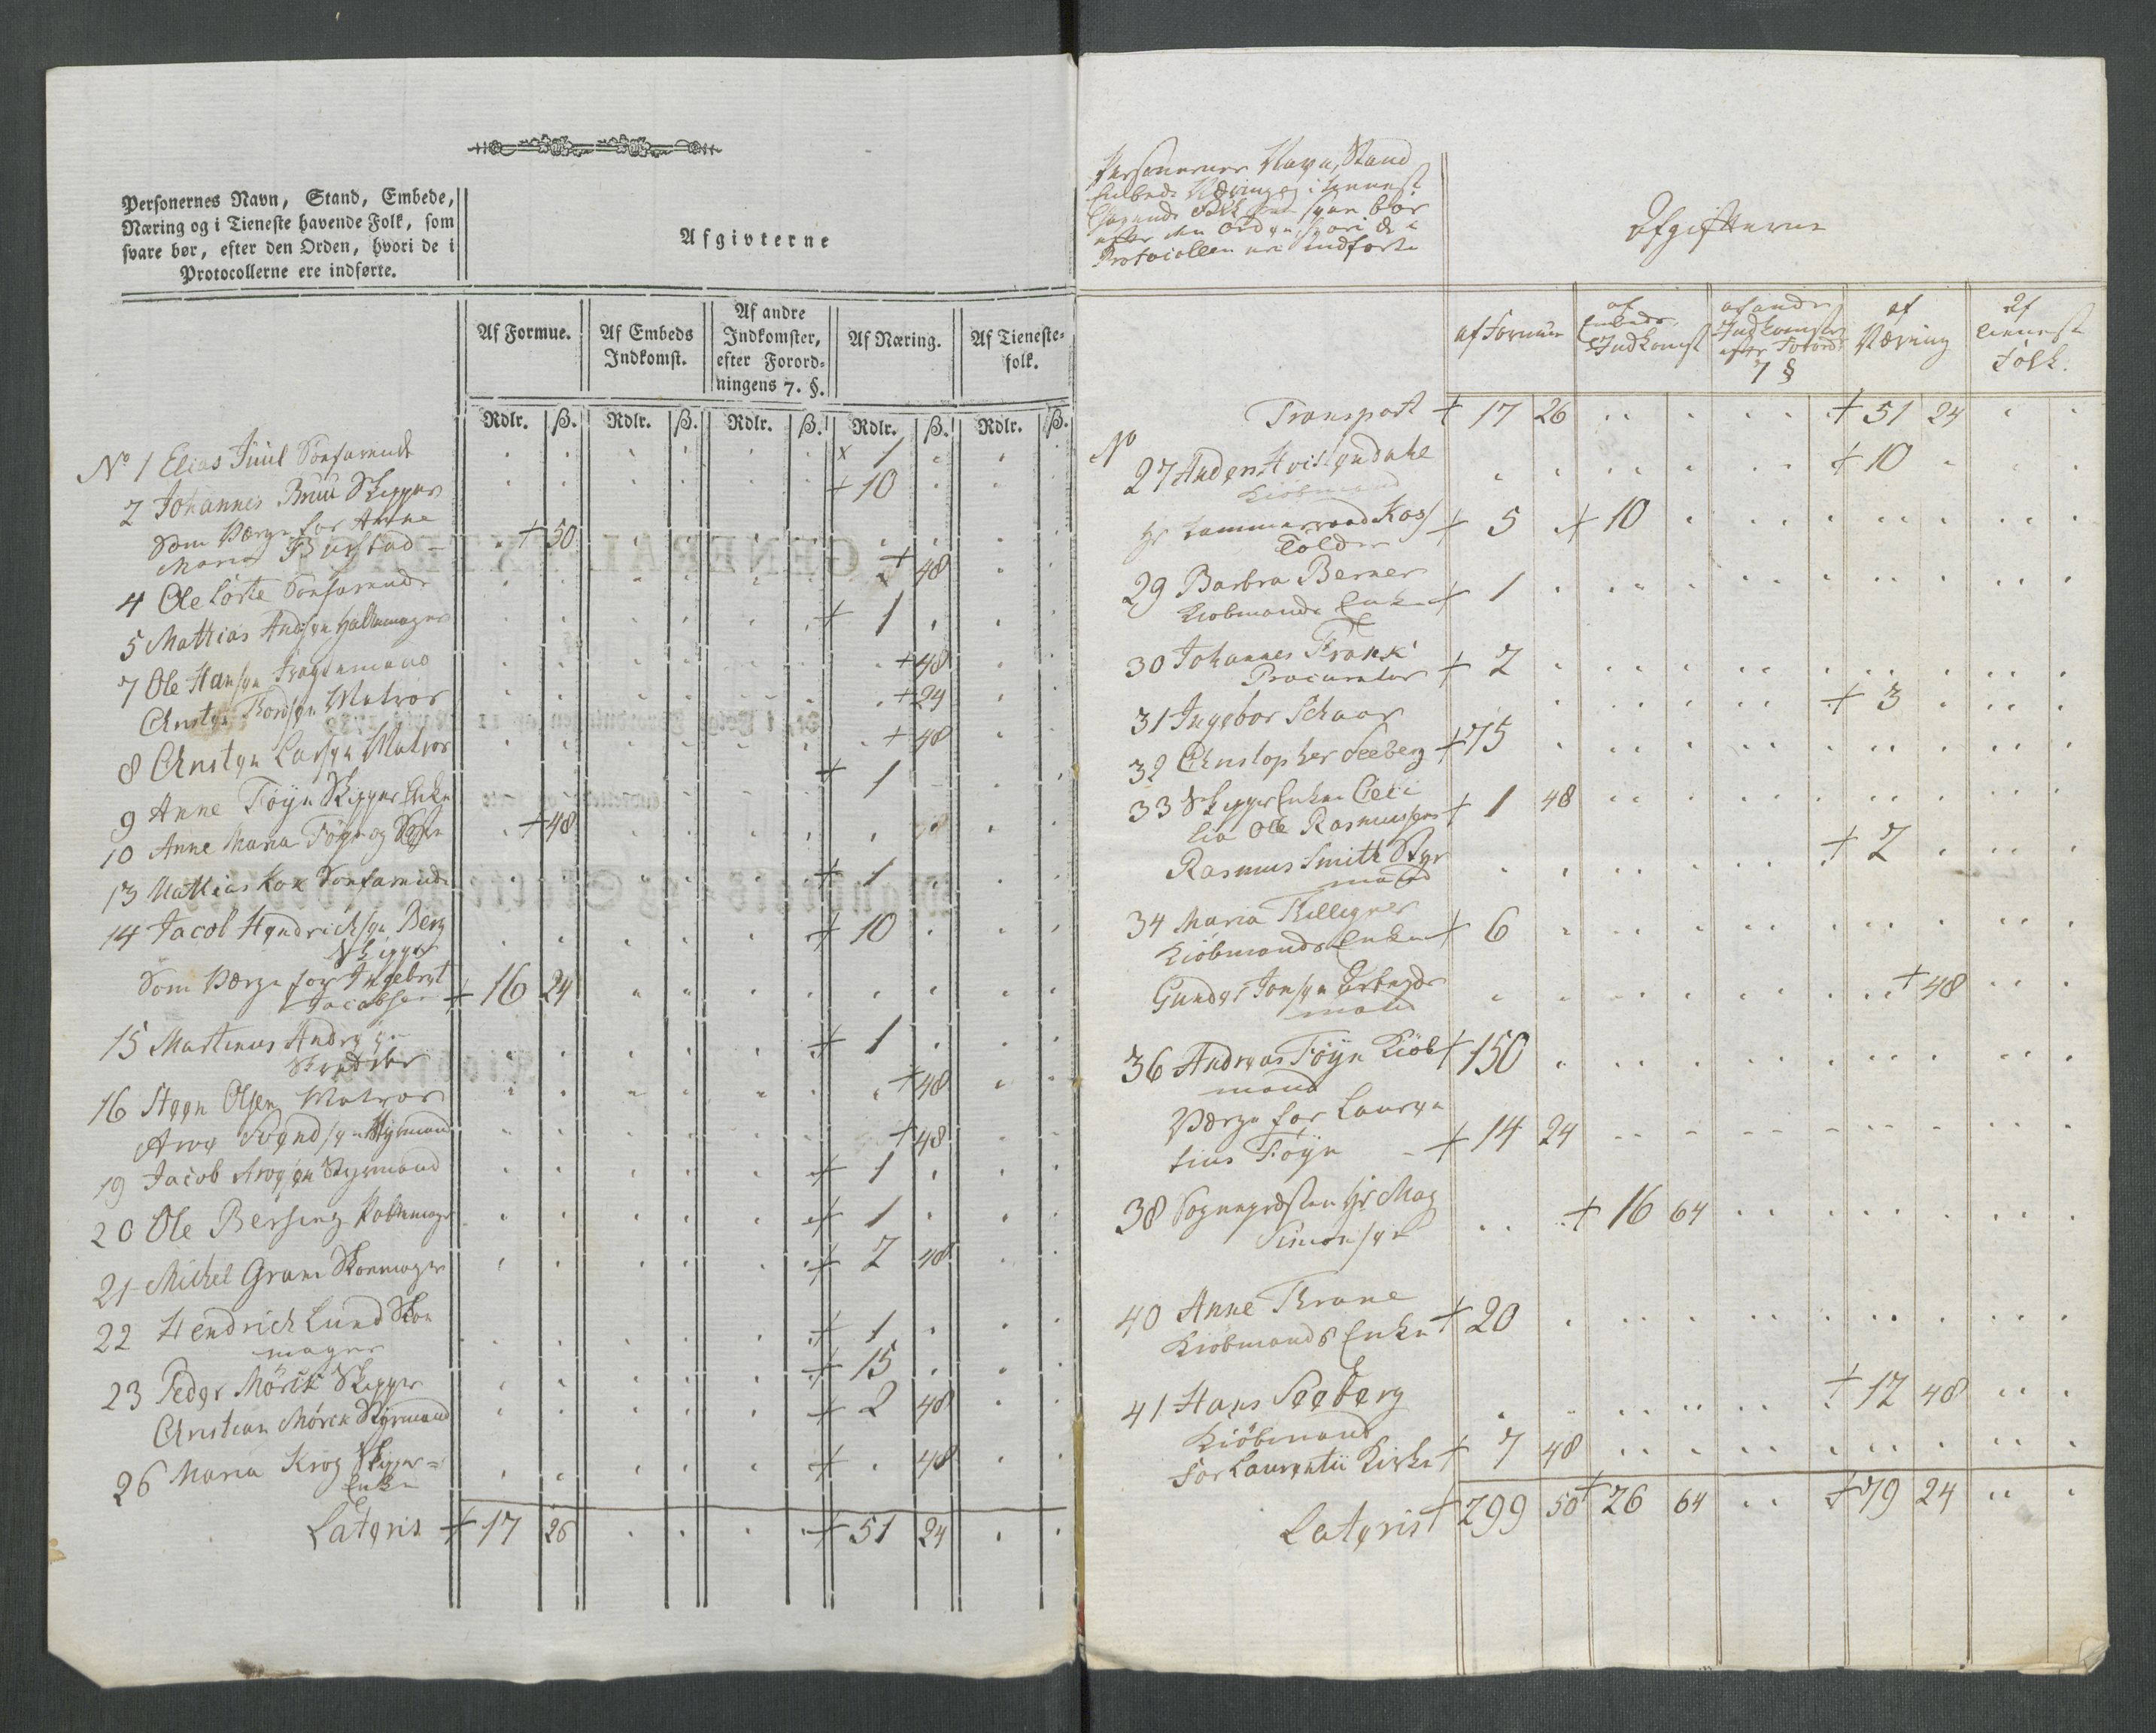 Personernes Navn, Stand, Embede,
Næring og i Tieneste havende Folk, som
svare bør, efter den Orden, hvori de i
Protocollerne ere indførte.
Afgivterne
Af Formue.
Af Embeds
Indkomst.
Af andre
Indkomster,
efter Forord-
ningens 7. §.
Af Næring.
Af Tieneste-
folk.
Rdlr. ß. Rdlr. ß. Rdlr. ß. Rdlr. ß. Rdlr. ß.
No 1 Elias Juul Søefarende x 1
2 Johannes Bruu Skipper + 10
Som Værge for Anne
Maria Bustad + 50
4 Ole Lórte Søefarende + 48
5 Mathias Andsen Hattemager + 1
7 Ole Hansen + 48
Christen Thordsen Matros + 24
8 Christen Larsen Matros + 48
9 Anne Föyn Skipper Enke + 1
10 Anne Maria Föyn og + 48
13 Mathias Kox Søefarende + 1
14 Jacob Hendrichsen Berg
Skipper + 10
Som Værge for Ingebret
Jacobsen + 16 24
15 Martinus Andr
Skrædder + 1
16 Steen Olsen Matros + 48
Aroe Svendsen Styrmand + 48
19 Jacob Aroesen Styrmand + 1
20 Ole Bersing + 1
21 Michel Gram Skoemager + 2 48
22 Hendrich Lund Skoe
mager + 1
23 Peder Mörck Skipper + 15
Christian Mörck Styrmand + 2 48
26 Maria Krog Skipper=
Enke + 48
Lateris + 17 26 + 51 24
Personernes Navn, Stand
Embede Næring og i tieneste
havende Folk som svare bør
efter den Orden hvori de i
Protocollen ere indførte
Afgifterne
af Formue
af
Embeds
Indkomst
af andre
Indkomster
efter Forord:
7 §
af
Næring
af
tieneste
Folk.
Transport + 17 26 + 51 24
No
27 Anders Hvistendahl
Kiöbmand + 10
Hr Kammerraad Kos
Tolder + 5 + 10
29 Barbra Berner
Kiobmands Enke + 1
30 Johannes Frank
Procurator + 2
31 Ingebor Schaar + 3
32 Christopher Seeberg + 75
33 Skipper Enken Ceci
lia Ole Rasmussens + 1 48
Rasmus Smith Styr
mand + 2
34 Maria Tilleqner
Kiöbmands Enke + 6
Gunder Jonsen Arbeyds
mand + 48
36 Andreas Föyn Kiöb
mand + 150
Værge for Lauren
tius Föyn + 14 24
38 Sognepræsten Hr Mag
Simonsen + 16 64
40 Anne Thrane
Kiöbmands Enke + 20
41 Hans Seeberg
Kiöbmand + 12 48
For Laurentii Kirke + 7 48
Lateris + 299 50 + 26 64 + 79 24